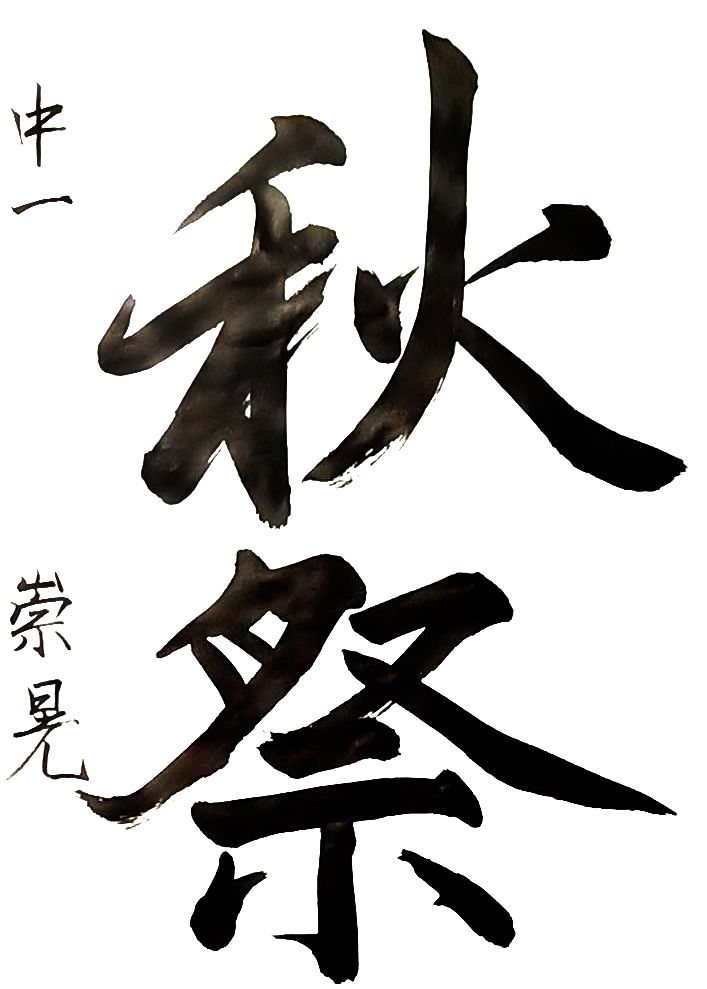 秋祭
中一 崇晃